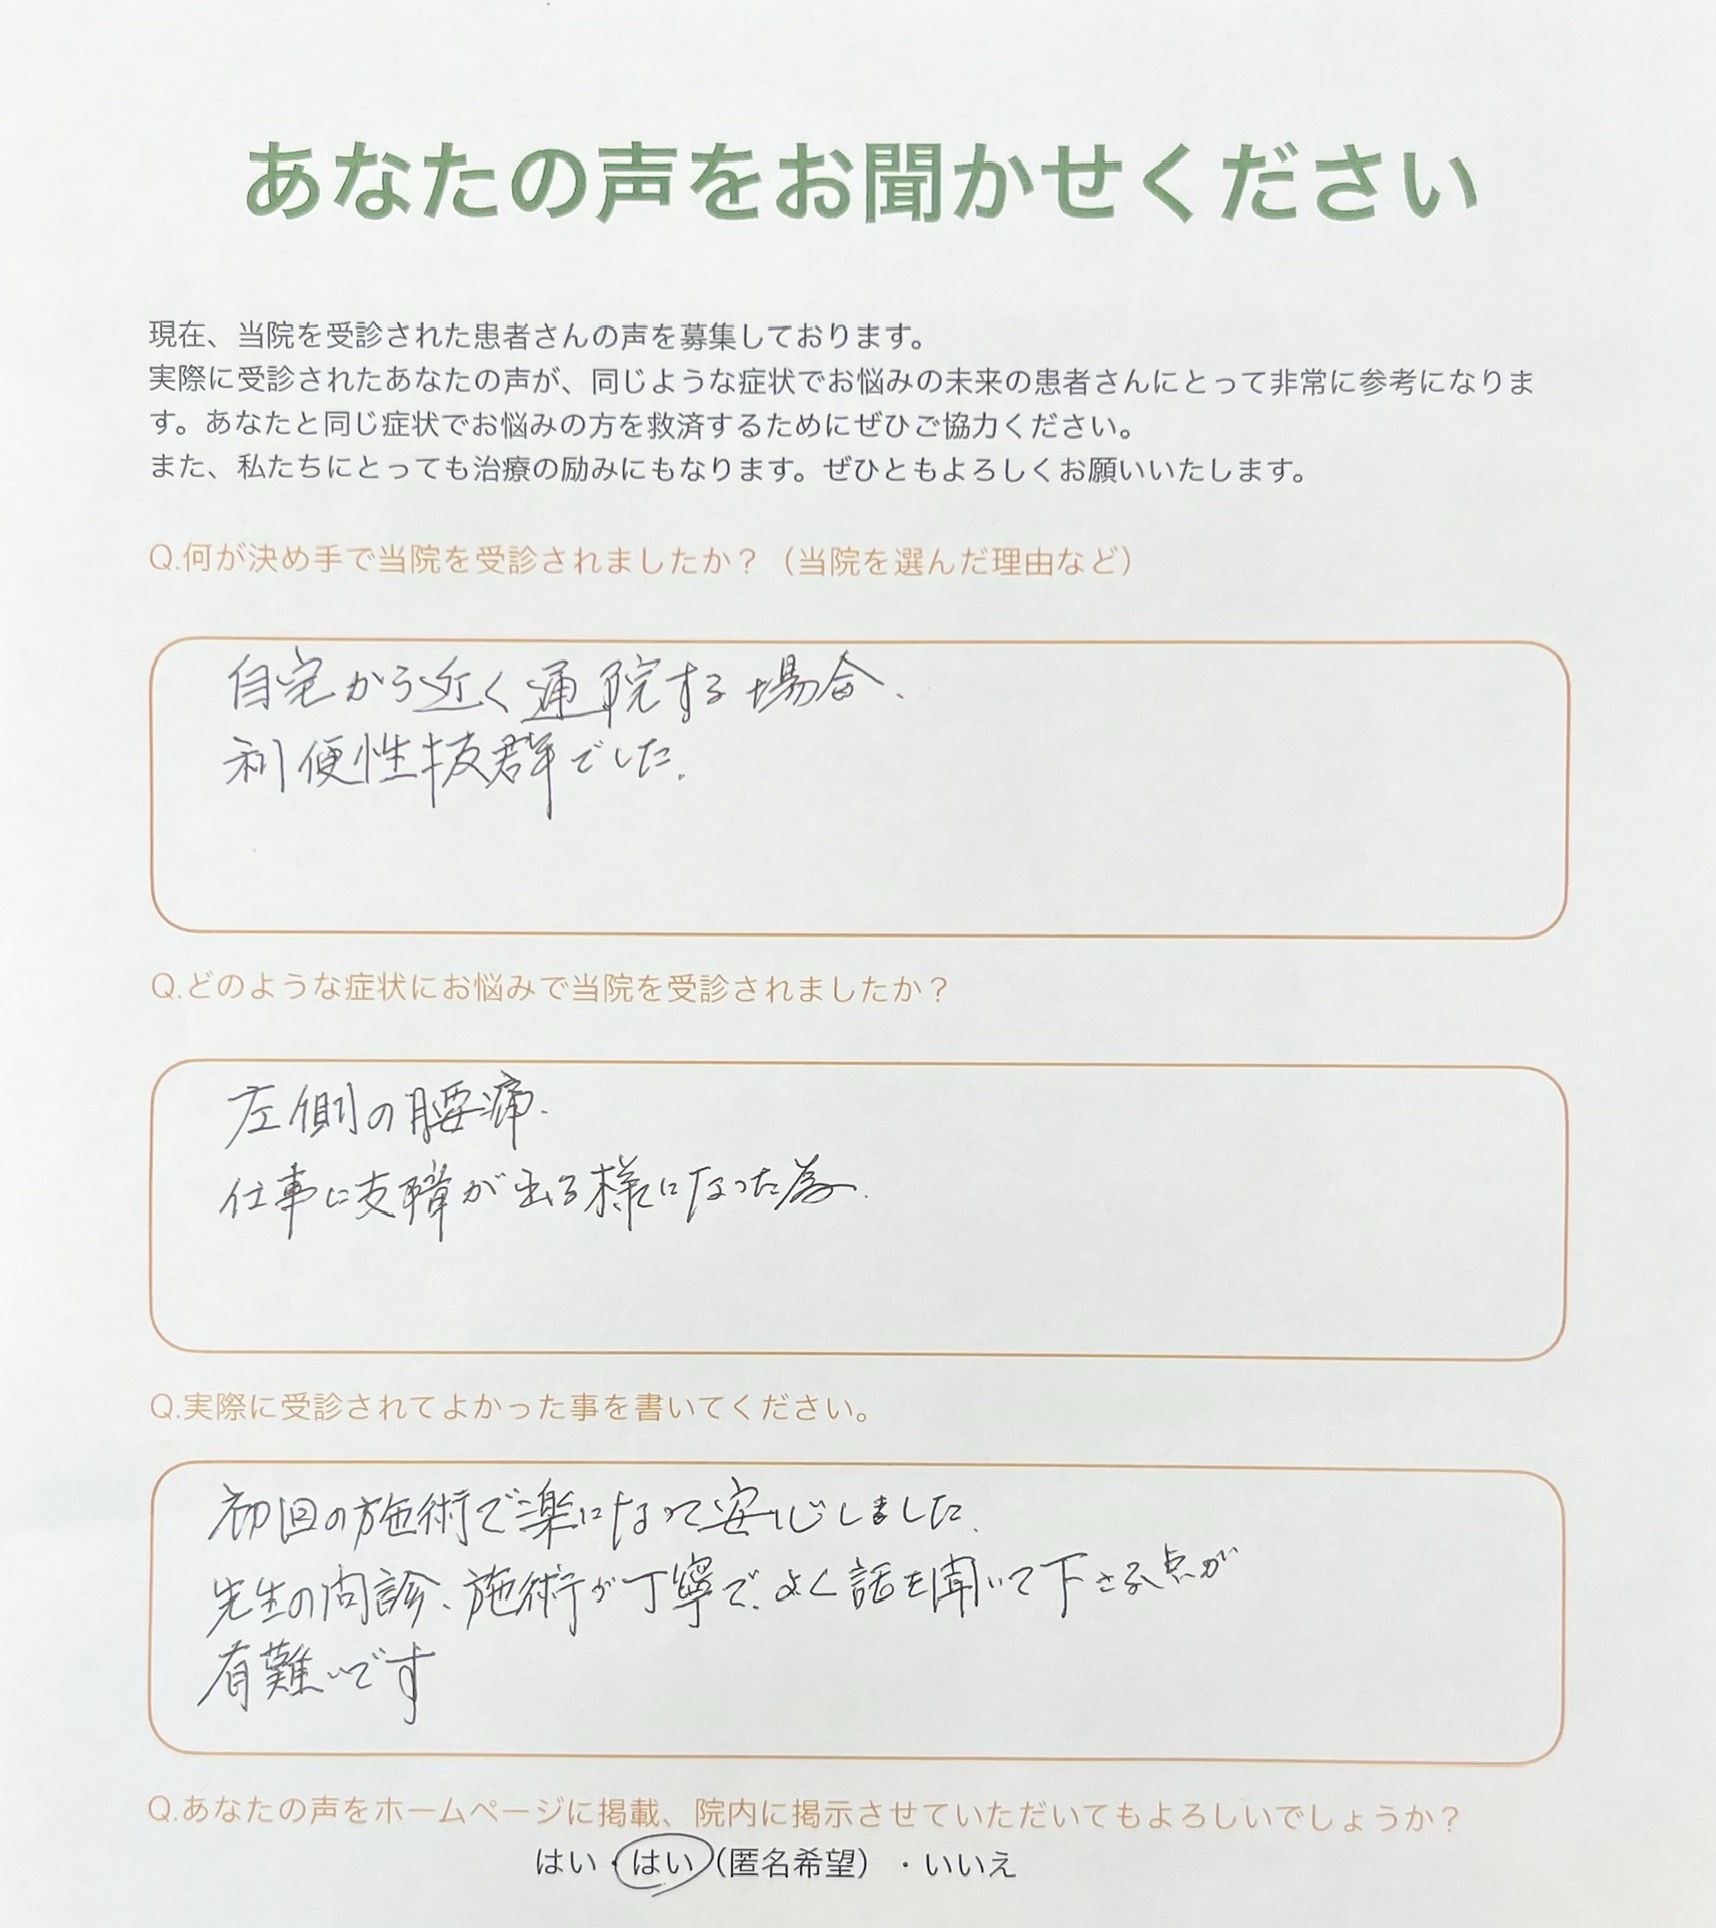 あなたの声をお聞かせください
現在、当院を受診された患者さんの声を募集しております。
実際に受診されたあなたの声が、同じような症状でお悩みの未来の患者さんにとって非常に参考になりま
す。あなたと同じ症状でお悩みの方を救済するためにぜひご協力ください。
また、私たちにとっても治療の励みにもなります。ぜひともよろしくお願いいたします。
Q.何が決め手で当院を受診されましたか？（当院を選んだ理由など）
自宅から近く通院する場合、
利便性抜群でした。
Q.どのような症状にお悩みで当院を受診されましたか？
左側の腰痛.
仕事に支障が出る様になった為.
Q.実際に受診されてよかった事を書いてください。
初回の施術で楽になって安心しました、
先生の問診、施術が丁寧で、よく話を聞いて下さる点が
有難いです
Q.あなたの声をホームページに掲載、院内に掲示させていただいてもよろしいでしょうか？
はい・はい（匿名希望）・いいえ